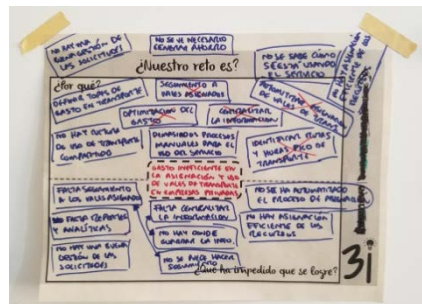 NO HAY UNA
BUENA GESTIÓN DE
LAS SOLICITUDES
NO SE VE NECESARIO
GENERAR AHORRO
NO SE SABE CÓMO
SE ESTÁ USANDO
EL SERVICIO
NO HAY ASIGNACIÓN
EFICIENTE DE LOS
¿Nuestro reto es?
¿Por qué?
DEFINIR TOPES DE
GASTO EN TRANSPORTE
SEGUIMIENTO A
VALES ASIGNADOS
AUTOMATIZAR
DE VALES DE
OPTIMIZACIÓN DEL
GASTO
CENTRALIZAR
LA INFORMACIÓN
NO HAY CULTURA
DE USO DE TRANSPORTE
COMPARTIDO
DEMASIADOS PROCESOS
MANUALES PARA EL
USO DEL SERVICIO
IDENTIFICAR
Y HORAS PICO DE
TRANSPORTE
GASTO INEFICIENTE EN
LA ASIGNACIÓN Y USO
DE VALES DE TRANSPORTE
EN EMPRESAS PRIVADAS
FALTA SEGUIMIENTO
A LOS VALES ASIGNADOS
NO SE HA AUTOMATIZADO
EL PROCESO DE
FALTA REPORTES
Y ANALÍTICAS
FALTA CENTRALIZAR
LA INFORMACIÓN
NO HAY ASIGNACIÓN
EFICIENTE DE LOS
RECURSOS
NO HAY DONDE
GUARDAR LA INFO.
NO HAY UNA BUENA
GESTIÓN DE LAS
SOLICITUDES
NO SE PUEDE HACER
SEGUIMIENTO
¿Qué ha impedido que se logre?
3i